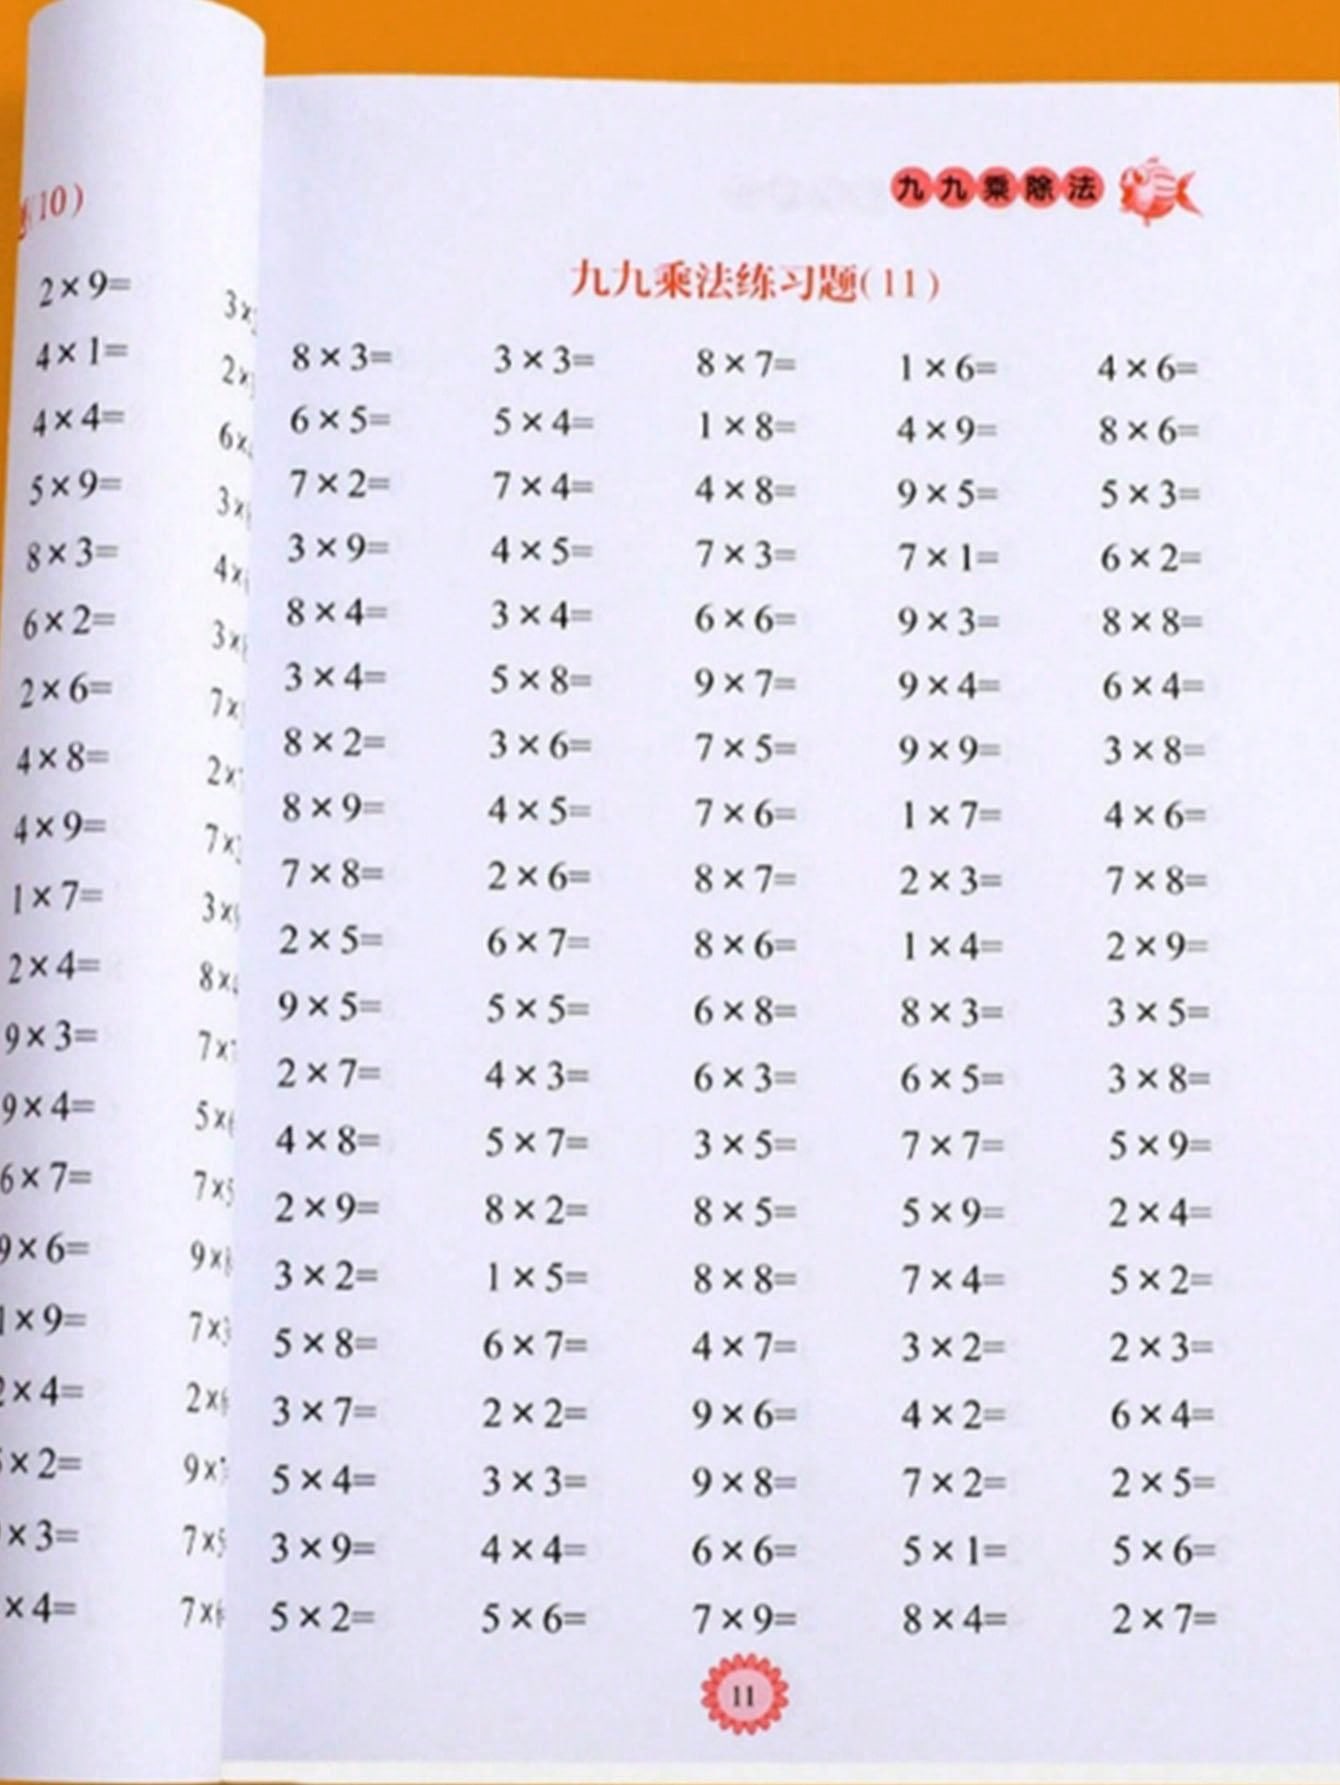 (10)
2×9=
4×1=
4×4=
5×9=
8×3=
6×2=
2×6=
4×8=
4×9=
1×7=
2×4=
9×3=
9×4=
6×7=
9×6=
1×9=
2×4=
×2=
×3=
×4=
九九乘除法
九九乘法练习题(11)
8×3= 3×3= 8×7= 1×6= 4×6=
6×5= 5×4= 1×8= 4×9= 8×6=
7×2= 7×4= 4×8= 9×5= 5×3=
3×9= 4×5= 7×3= 7×1= 6×2=
8×4= 3×4= 6×6= 9×3= 8×8=
3×4= 5×8= 9×7= 9×4= 6×4=
8×2= 3×6= 7×5= 9×9= 3×8=
8×9= 4×5= 7×6= 1×7= 4×6=
7×8= 2×6= 8×7= 2×3= 7×8=
2×5= 6×7= 8×6= 1×4= 2×9=
9×5= 5×5= 6×8= 8×3= 3×5=
2×7= 4×3= 6×3= 6×5= 3×8=
4×8= 5×7= 3×5= 7×7= 5×9=
2×9= 8×2= 8×5= 5×9= 2×4=
3×2= 1×5= 8×8= 7×4= 5×2=
5×8= 6×7= 4×7= 3×2= 2×3=
3×7= 2×2= 9×6= 4×2= 6×4=
5×4= 3×3= 9×8= 7×2= 2×5=
3×9= 4×4= 6×6= 5×1= 5×6=
5×2= 5×6= 7×9= 8×4= 2×7=
11